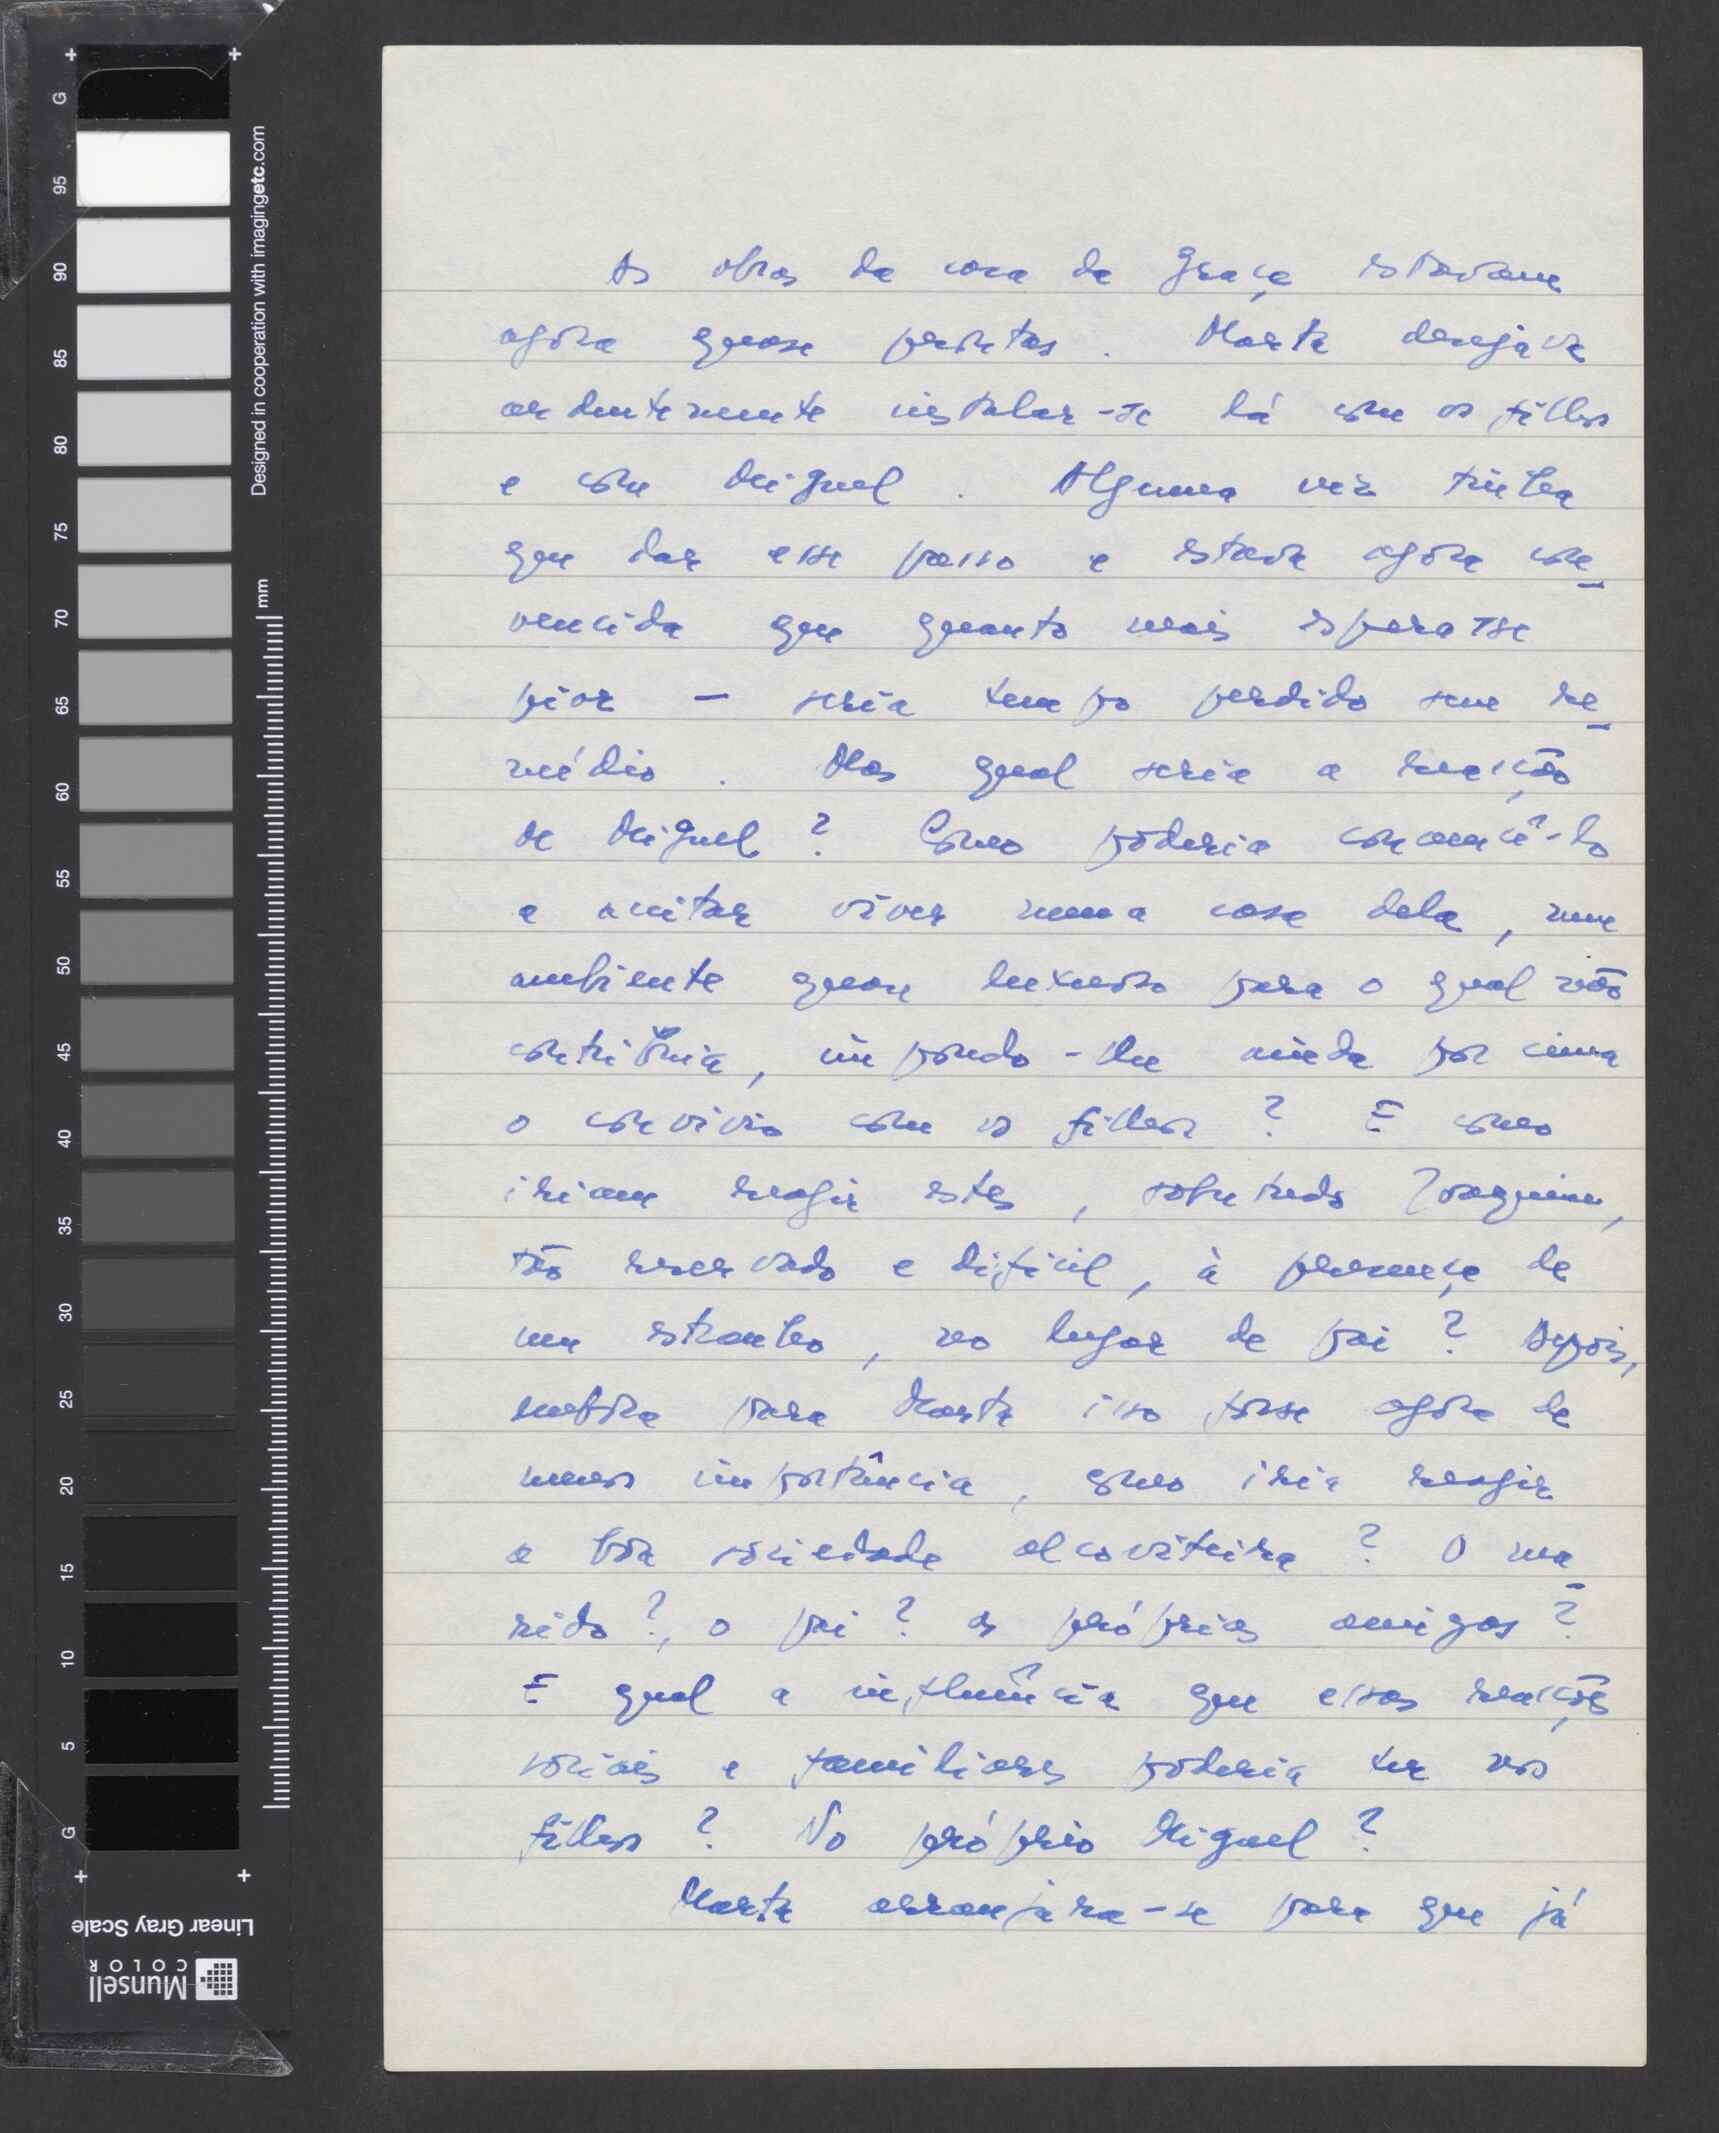 As obras da casa da Graça estavam
agora quase prontas. Marta desejava
ardentemente instalar-se lá com os filhos
e com Miguel. Alguma vez tinha
que dar esse passo e estava agora con-
vencida que quanto mais esperasse
pior – seria tempo perdido sem re-
médio. Mas qual seria a reacção
de Miguel? Como poderia convencê-lo
a aceitar viver numa casa dela, num
ambiente quase luxuoso para o qual não
contribuia, impondo-lhe ainda por cima
o convívio com os filhos? E como
iriam reagir estes, sobretudo Joaquim,
tão reservado e difícil, à presença de
um estranho, no lugar de pai? Depois,
embora para Marta isso fosse agora de
menos importância, como iria reagir
a boa sociedade alcoviteira? O ma-
rido?, o pai? os próprios amigos?
E qual a influência que essas reacções
sociais e familiares poderia ter nos
filhos? No próprio Miguel?
Marta arranjara-se para que já
G
95
90
85
80
75
70
65
60
55
50
45
40
35
30
25
20
15
10
5
G
mm
Designed in cooperation with imagingetc.com
Linear Gray Scale
Munsell
COLOR